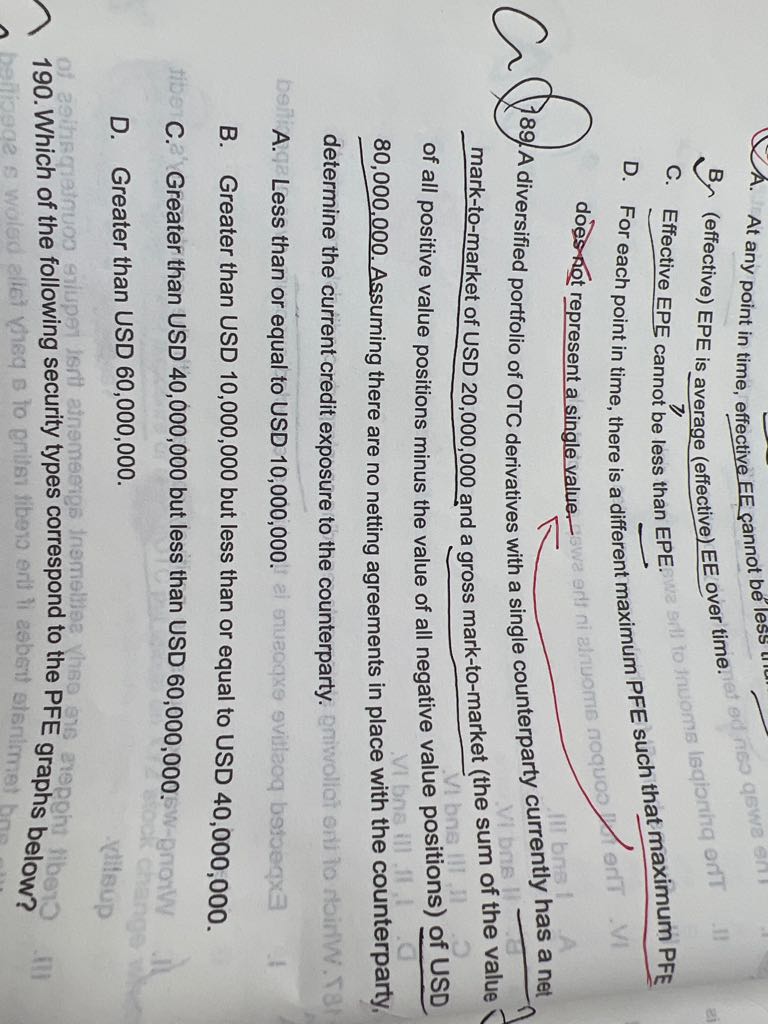 A. At any point in time, effective EE cannot be less
B. (effective) EPE is average (effective) EE over time.
C. Effective EPE cannot be less than EPE.
D. For each point in time, there is a different maximum PFE such that maximum PFE
does not represent a single value.
189. A diversified portfolio of OTC derivatives with a single counterparty currently has a net
mark-to-market of USD 20,000,000 and a gross mark-to-market (the sum of the value
of all positive value positions minus the value of all negative value positions) of USD
80,000,000. Assuming there are no netting agreements in place with the counterparty,
determine the current credit exposure to the counterparty.
A. Less than or equal to USD 10,000,000.
B. Greater than USD 10,000,000 but less than or equal to USD 40,000,000.
C. Greater than USD 40,000,000 but less than USD 60,000,000.
D. Greater than USD 60,000,000.
190. Which of the following security types correspond to the PFE graphs below?